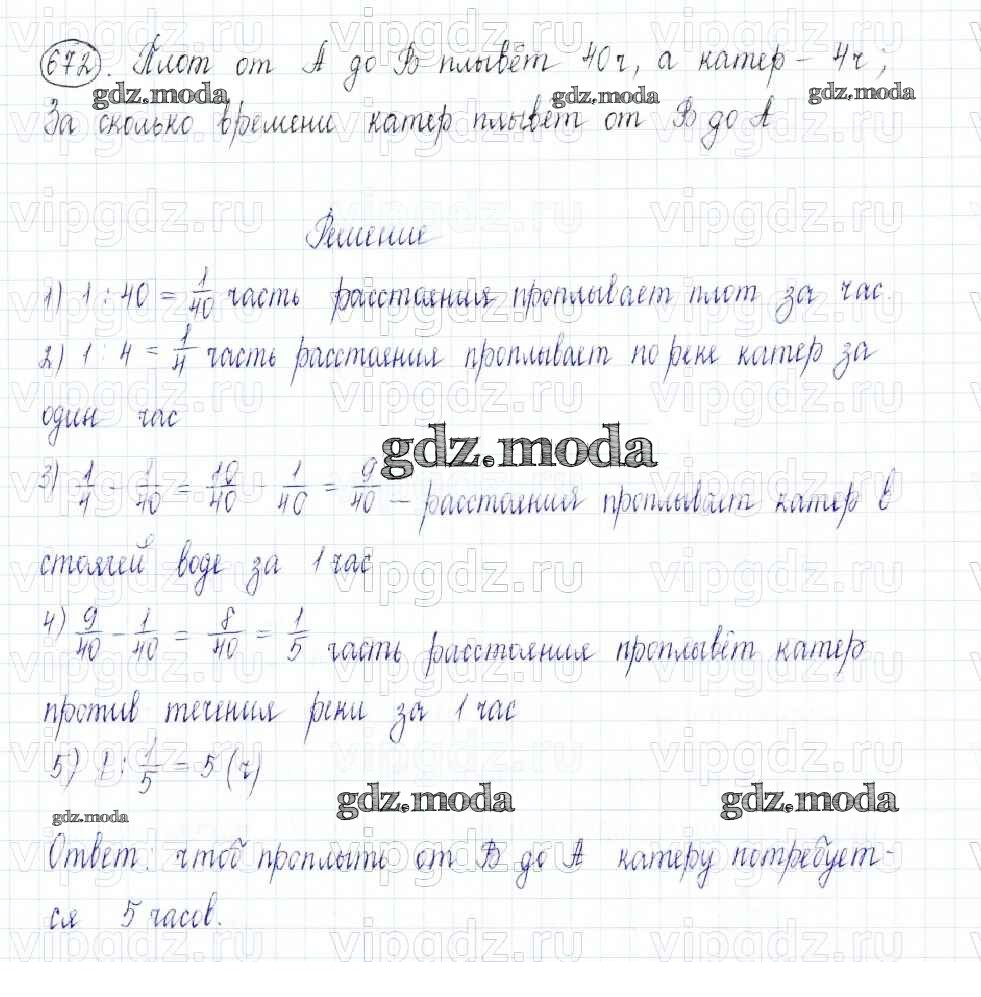 672. Плот от А до В плывёт 40ч, а катер – 4ч;
gdz.moda gdz.moda gdz.moda
За сколько времени катер плывёт от В до А
vipgdz.ru vipgdz.ru vipgdz.ru
Решение
1) 1 : 40 = 1/40 часть расстояния проплывает плот за час.
2) 1 : 4 = 1/4 часть расстояния проплывает по реке катер за
один час
gdz.moda
3) 1/4 - 1/40 = 10/40 - 1/40 = 9/40 – расстояния проплывает катер в
стоячей воде за 1 час
4) 9/40 - 1/40 = 8/40 = 1/5 часть расстояния проплывёт катер
против течения реки за 1 час
5) 1 : 1/5 = 5 (ч)
gdz.moda gdz.moda gdz.moda
Ответ: чтоб проплыть от В до А катеру потребует-
ся 5 часов.
vipgdz.ru vipgdz.ru vipgdz.ru